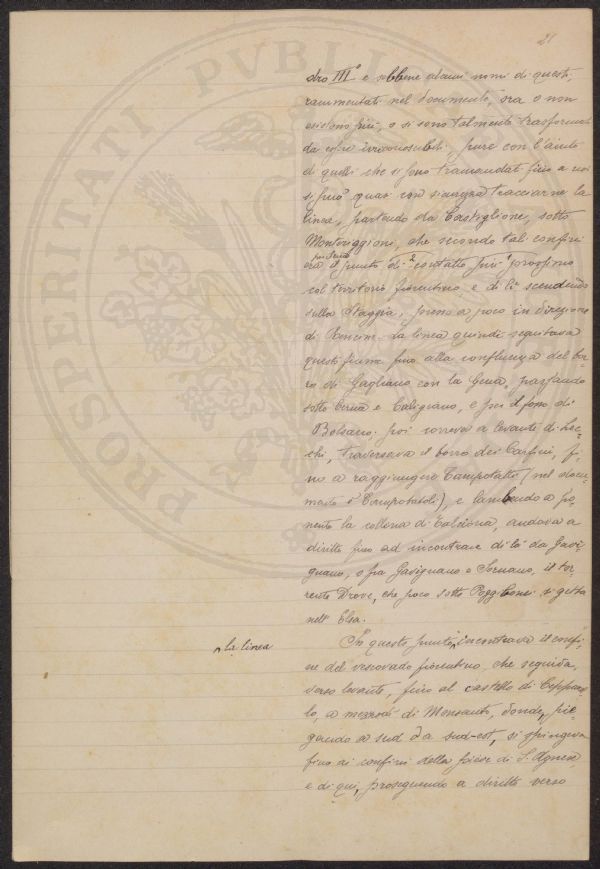 21
dro III° e sebbene alcuni nomi di questi,
rammentati nel documento, ora o non
esistono più, o si sono talmente trasformati
da essere irriconoscibili: pure con l'aiuto
di quelli che si sono tramandati fino a noi
si può quasi con sicurezza tracciarne la
linea, partendo da Castiglione, sotto
Monteriggioni, che secondo tali confini
per Siena
era il punto di contatto più prossimo
col territorio fiorentino e di lì scendendo
sulla Staggia, presso a poco in direzione
di Rencine. La linea quindi seguitava
questo fiume fino alla confluenza del bor-
ro di Gagliano con la Gena, passando
sotto Cerna e Caligiano, e per il fosso di
Bolsano; poi correva a levante di Lec-
chi, traversava il borro dei Carfini, fi-
no a raggiungere Campotatti (nel docu-
mento è Campotatoli), e lambendo a po-
nente la collina di Talciona, andava a
diritto fino ad incontrare di là da Gavi-
gnano, o fra Gavignano e Sornano, il tor-
rente Drove, che poco sotto Poggibonsi si getta
nell'Elsa.
In questo punto, incontrava il confi-
la linea
ne del vescovado fiorentino che seguiva,
verso levante, fino al castello di Cepparel-
lo, a mezzodì di Monsanto, donde, pie-
gando a sud da sud-est, si spingeva
fino ai confini della pieve di S. Agnese
e di qui, proseguendo a diritto verso
PROSPERITATI PVBLICAE